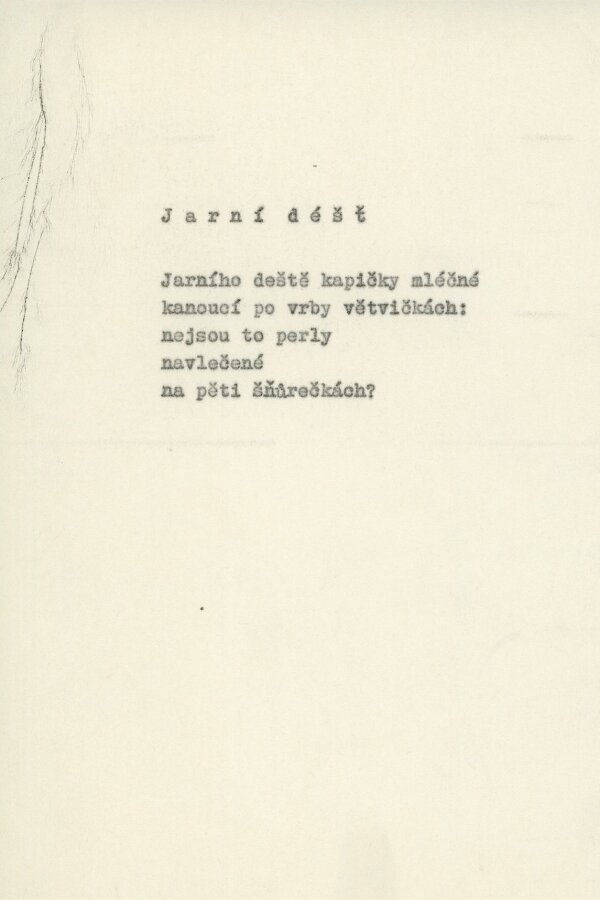 Jarní déšť
Jarního deště kapičky mléčné
kanoucí po vrby větvičkách:
nejsou to perly
navlečené
na pěti šňůrečkách?